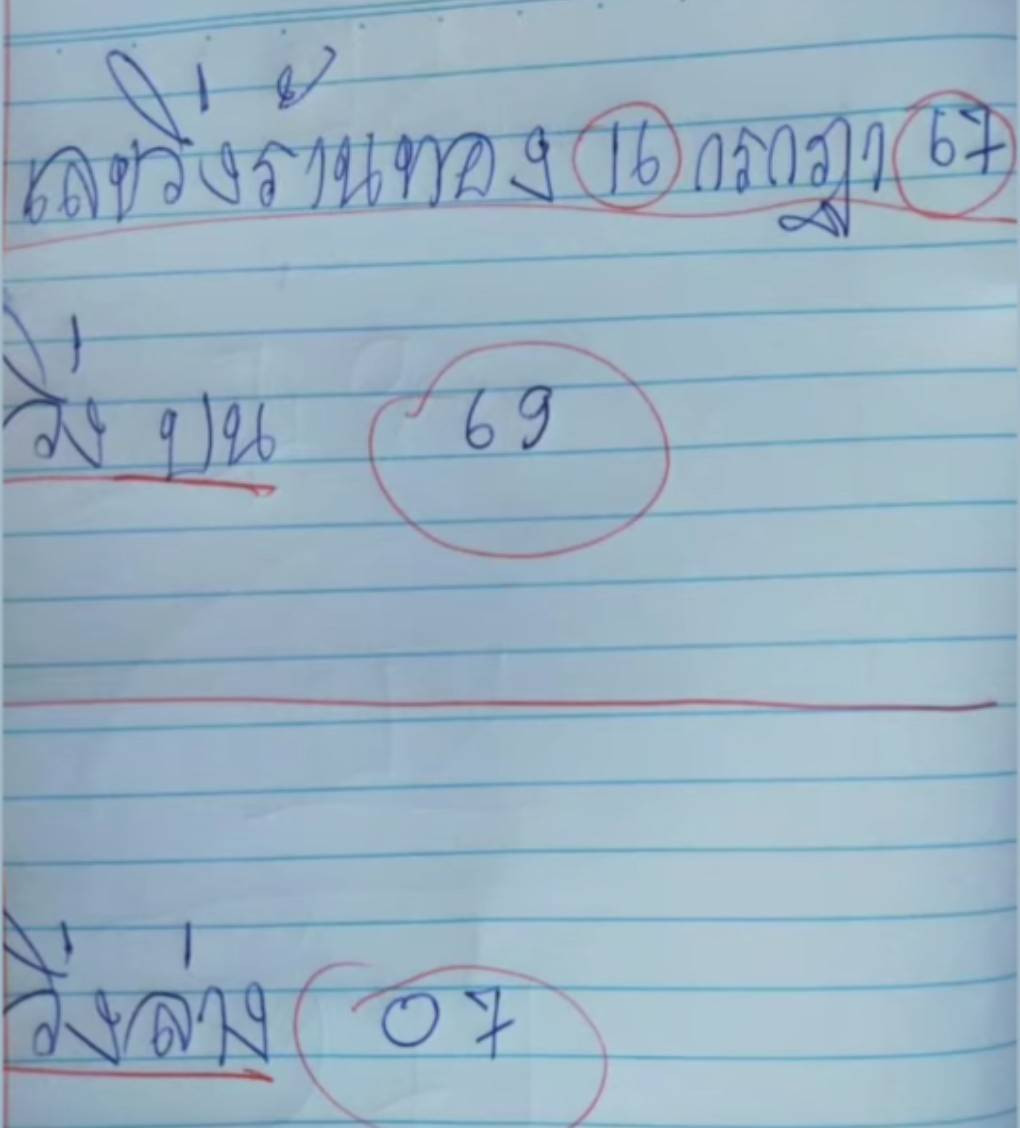 เลขวิ่งร้านทอง 16 กรกฎา 67
วิ่ง บน 69
วิ่งล่าง 07